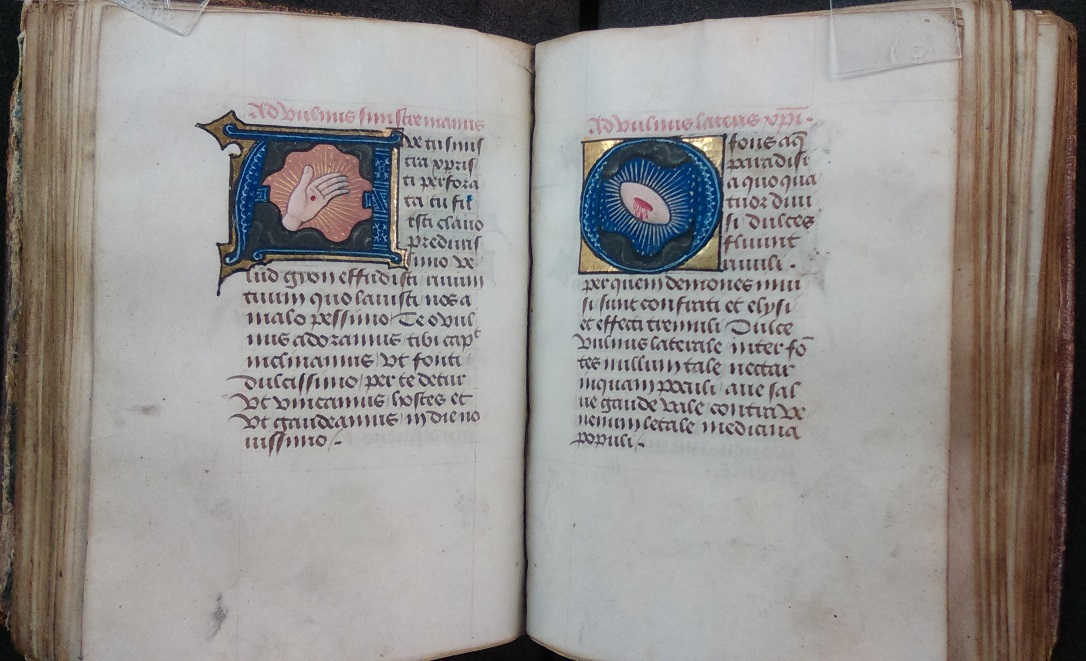 Ad vulnus sinistre manus
Ave tu sinis
tra xpris
ti perfora
ta tu fu
isti clavo
preduris
simo ve
lud gyon effudisti rivum
tuum quo lavisti nos a
malo pessimo Te o vul
nus adoramus tibi cap
inclinamus / ut fonti
dulcissimo / per te detur
ut vincamus / hostes et
ut gaudeamus in die no
vissimo /.
Ad vulnus lateris xpi.
O fons aq
paradisi
a quo qua
tuor diui
si dulces
fluunt
riuuli.
per quem demones inui
si sunt confrati et elysi
et effecti tremuli Dulce
vulnus laterale inter fo
tes nullum tale nectar
inquam poculi aue sal
ue gaude vale contra ve
nenum letale medicina
populi.